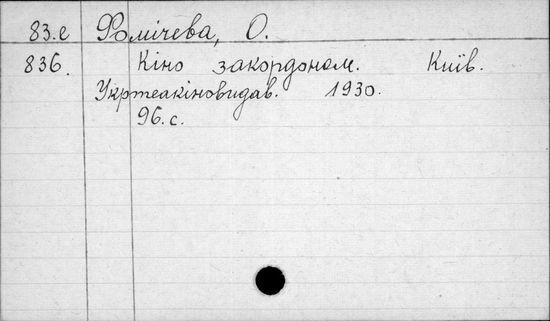 83.е Фомічева, О.
836. Кіно закордоном. Київ.
Укртеакіновидав. 1930.
96.с.